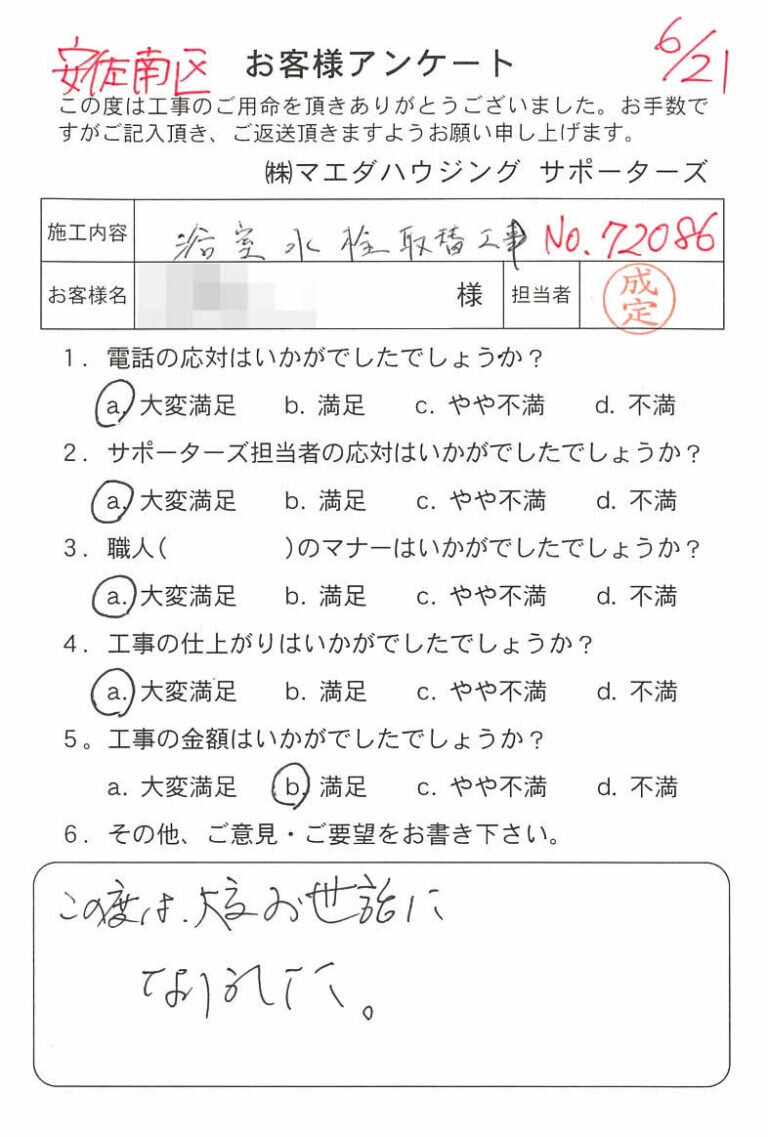 安佐南区 お客様アンケート 6/21
この度は工事のご用命を頂きありがとうございました。お手数で
すがご記入頂き、ご返送頂きますようお願い申し上げます。
㈱マエダハウジング サポーターズ
施工内容 浴室水栓取替工事 No.72086
お客様名 様 担当者 成定
1. 電話の応対はいかがでしたでしょうか？
a. 大変満足 b. 満足 c. やや不満 d. 不満
2. サポーターズ担当者の応対はいかがでしたでしょうか？
a. 大変満足 b. 満足 c. やや不満 d. 不満
3. 職人( )のマナーはいかがでしたでしょうか？
a. 大変満足 b. 満足 c. やや不満 d. 不満
4. 工事の仕上がりはいかがでしたでしょうか？
a. 大変満足 b. 満足 c. やや不満 d. 不満
5。工事の金額はいかがでしたでしょうか？
a. 大変満足 b. 満足 c. やや不満 d. 不満
6. その他、ご意見・ご要望をお書き下さい。
この度は、大変お世話に
なりました。